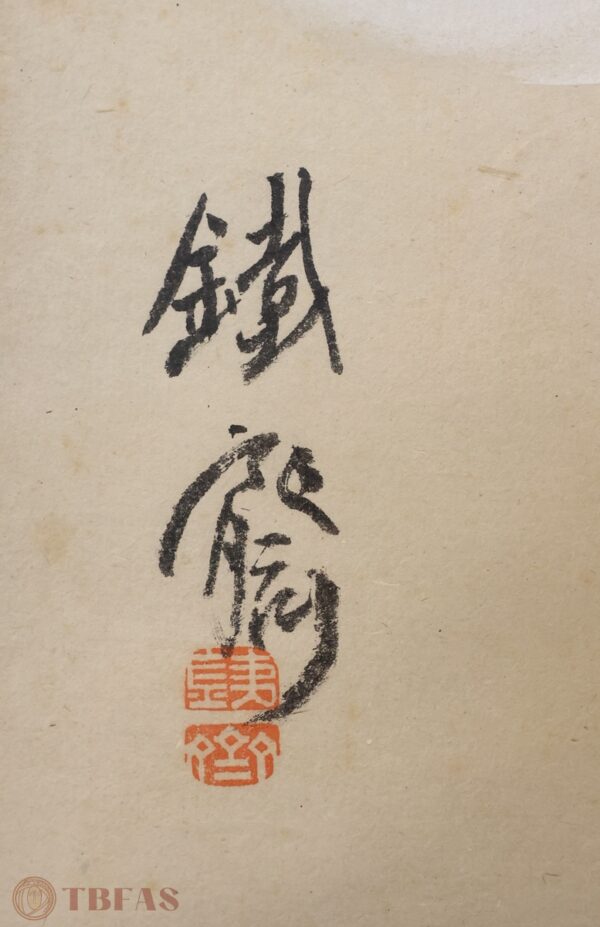 鐵
齋
TBFAS